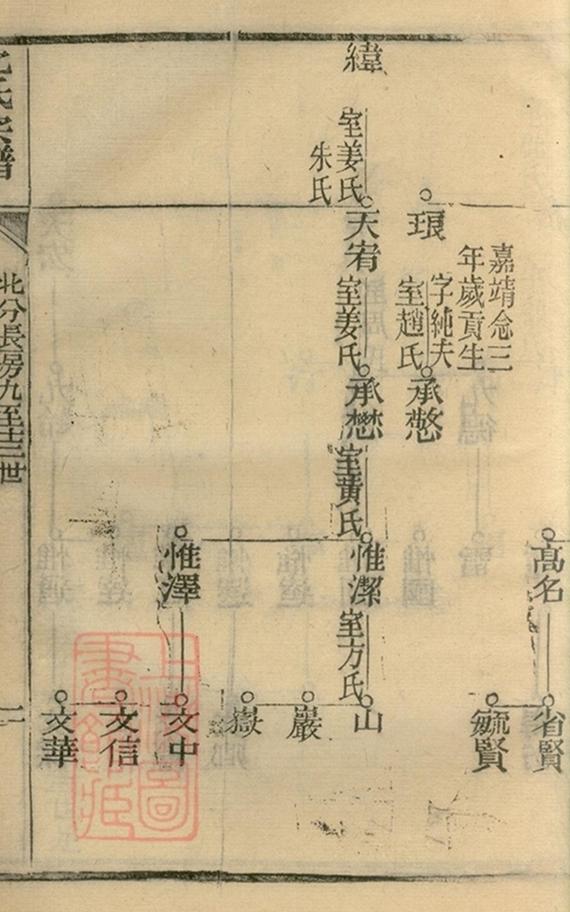 高名
省賢
毓賢
琅
嘉靖念三
年歲貢生
字純夫
室趙氏
承憨
緯
室姜氏
朱氏
天宥
室姜氏
承懋
室黄氏
惟潔
室方氏
山
巖
嶽
惟澤
文中
文信
文華
氏宗譜
北分長房九至十三世
上海圖
書館藏